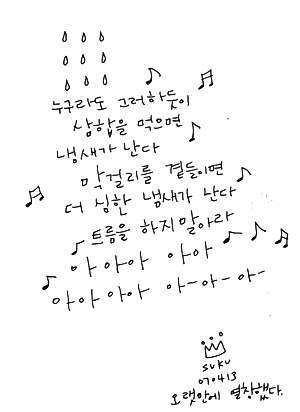 누구라도 그러하듯이
삼합을 먹으면
냄새가 난다
막걸리를 곁들이면
더 심한 냄새가 난다
트름을 하지말아라
아 아아 아아
아아 아아 아-아-아-
SUKU
070413
오랫만에 열창했다.